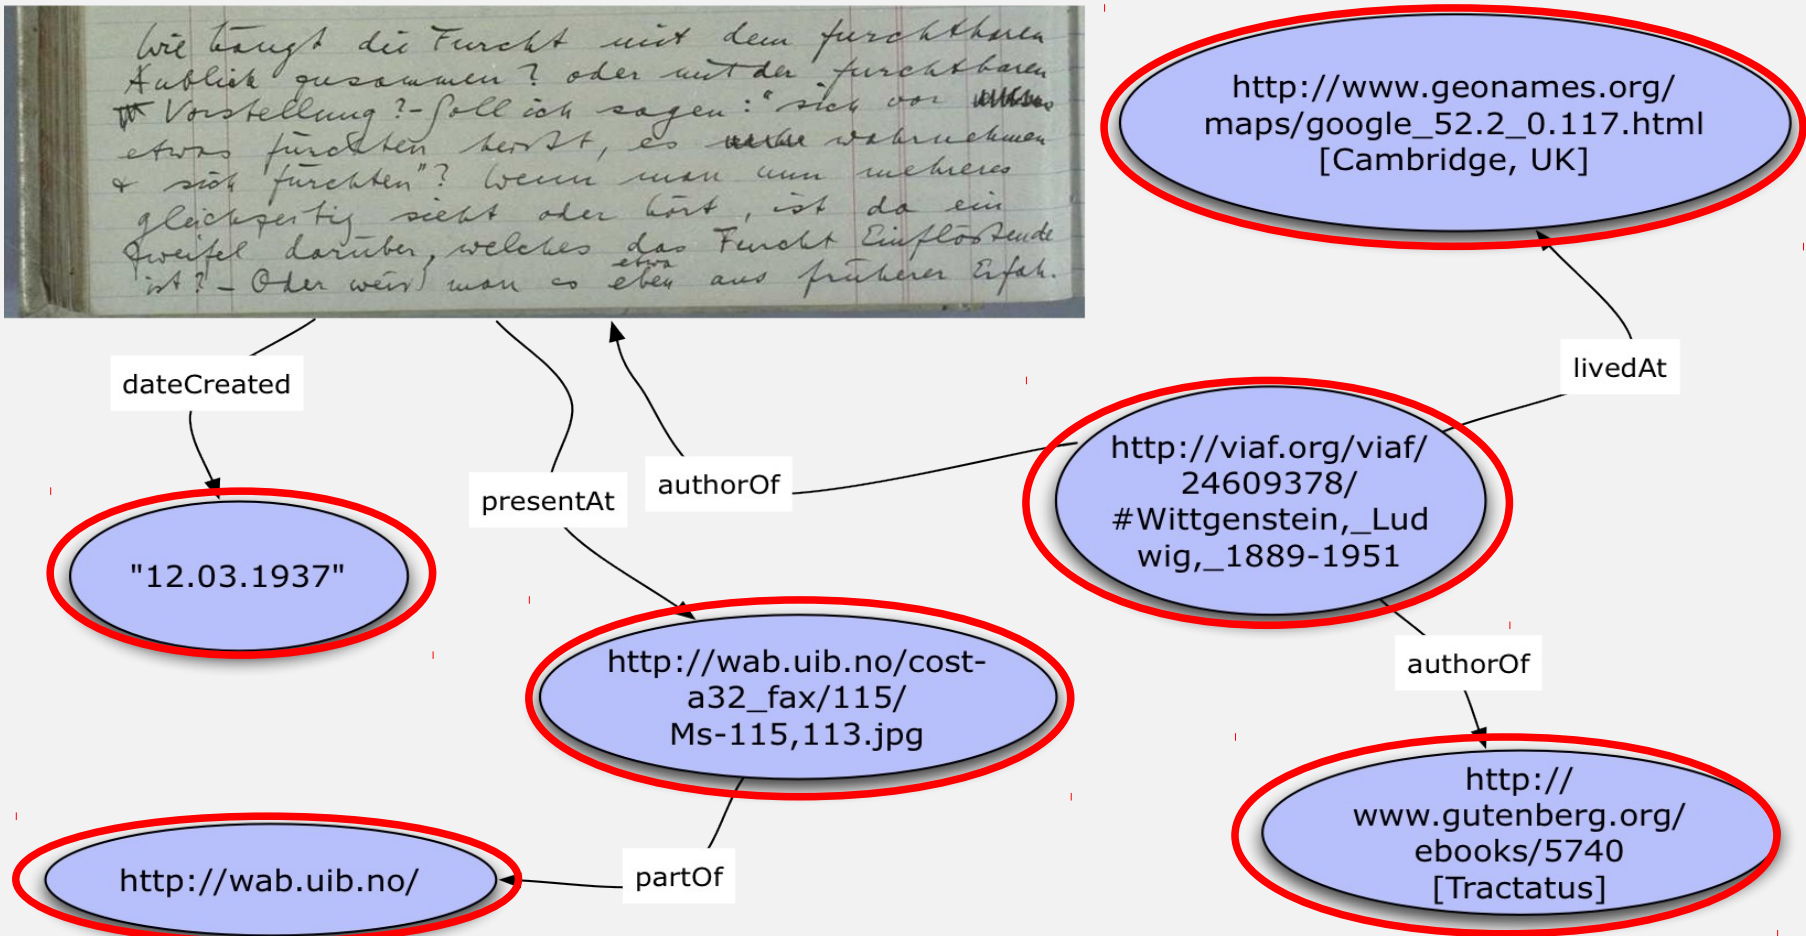 Wie hängt die Furcht mit dem furchtbaren
Anblick zusammen? oder mit der furchtbaren
Vorstellung? - Soll ich sagen: "sich vor
etwas fürchten heißt, es wahrnehmen
& sich fürchten"? Wenn man nun mehreres
gleichzeitig sieht oder hört, ist da ein
Zweifel darüber, welches das Furcht Einflößende
ist? - Oder weiß man es etwa eben aus früherer Erfah.
http://www.geonames.org/
maps/google_52.2_0.117.html
[Cambridge, UK]
livedAt
dateCreated
presentAt
authorOf
http://viaf.org/viaf/
24609378/
#Wittgenstein,_Lud
wig,_1889-1951
"12.03.1937"
http://wab.uib.no/cost-
a32_fax/115/
Ms-115,113.jpg
authorOf
http://
www.gutenberg.org/
ebooks/5740
[Tractatus]
partOf
http://wab.uib.no/